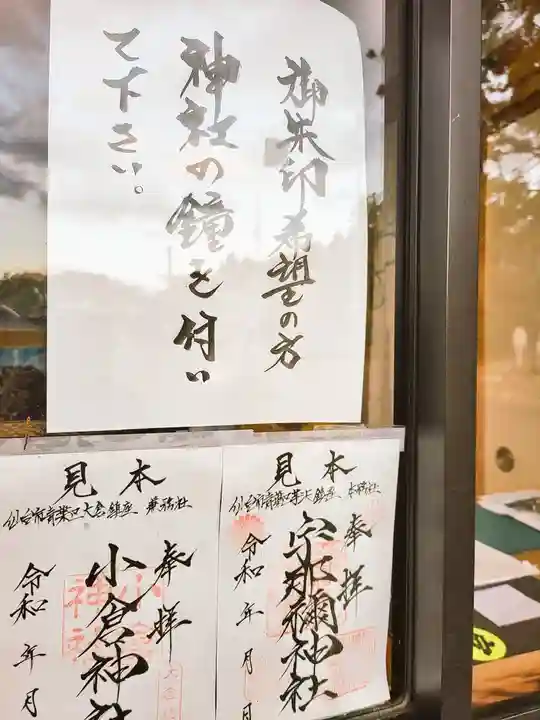 御朱印希望の方
神社の鐘を付い
て下さい。
見本
仙台市青葉区大倉鎮座 本務社
奉拝
宇那禰神社
令和 年 月
見本
仙台市青葉区大倉鎮座 兼務社
奉拝
小倉神社
令和 年 月